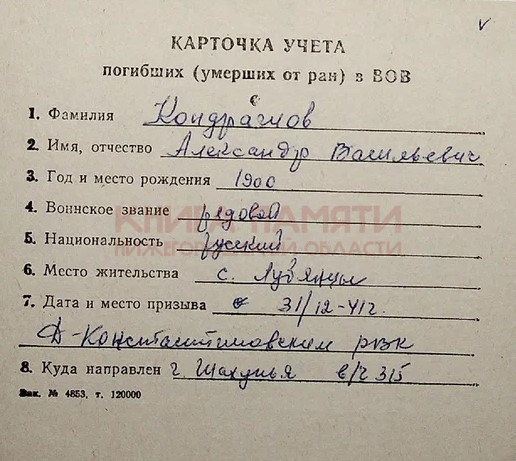 КАРТОЧКА УЧЕТА
погибших (умерших от ран) в ВОВ
1. Фамилия Кондрашов
2. Имя, отчество Александр Васильевич
3. Год и место рождения 1900
4. Воинское звание рядовой
КНИГА ПАМЯТИ
5. Национальность русский
НИЖЕГОРОДСКОЙ ОБЛАСТИ
6. Место жительства с. Лубянцы
7. Дата и место призыва 31/12-41г.
Д-Константиновским рвк
8. Куда направлен г. Шахунья в/ч 315
Зак. № 4853, т. 120000